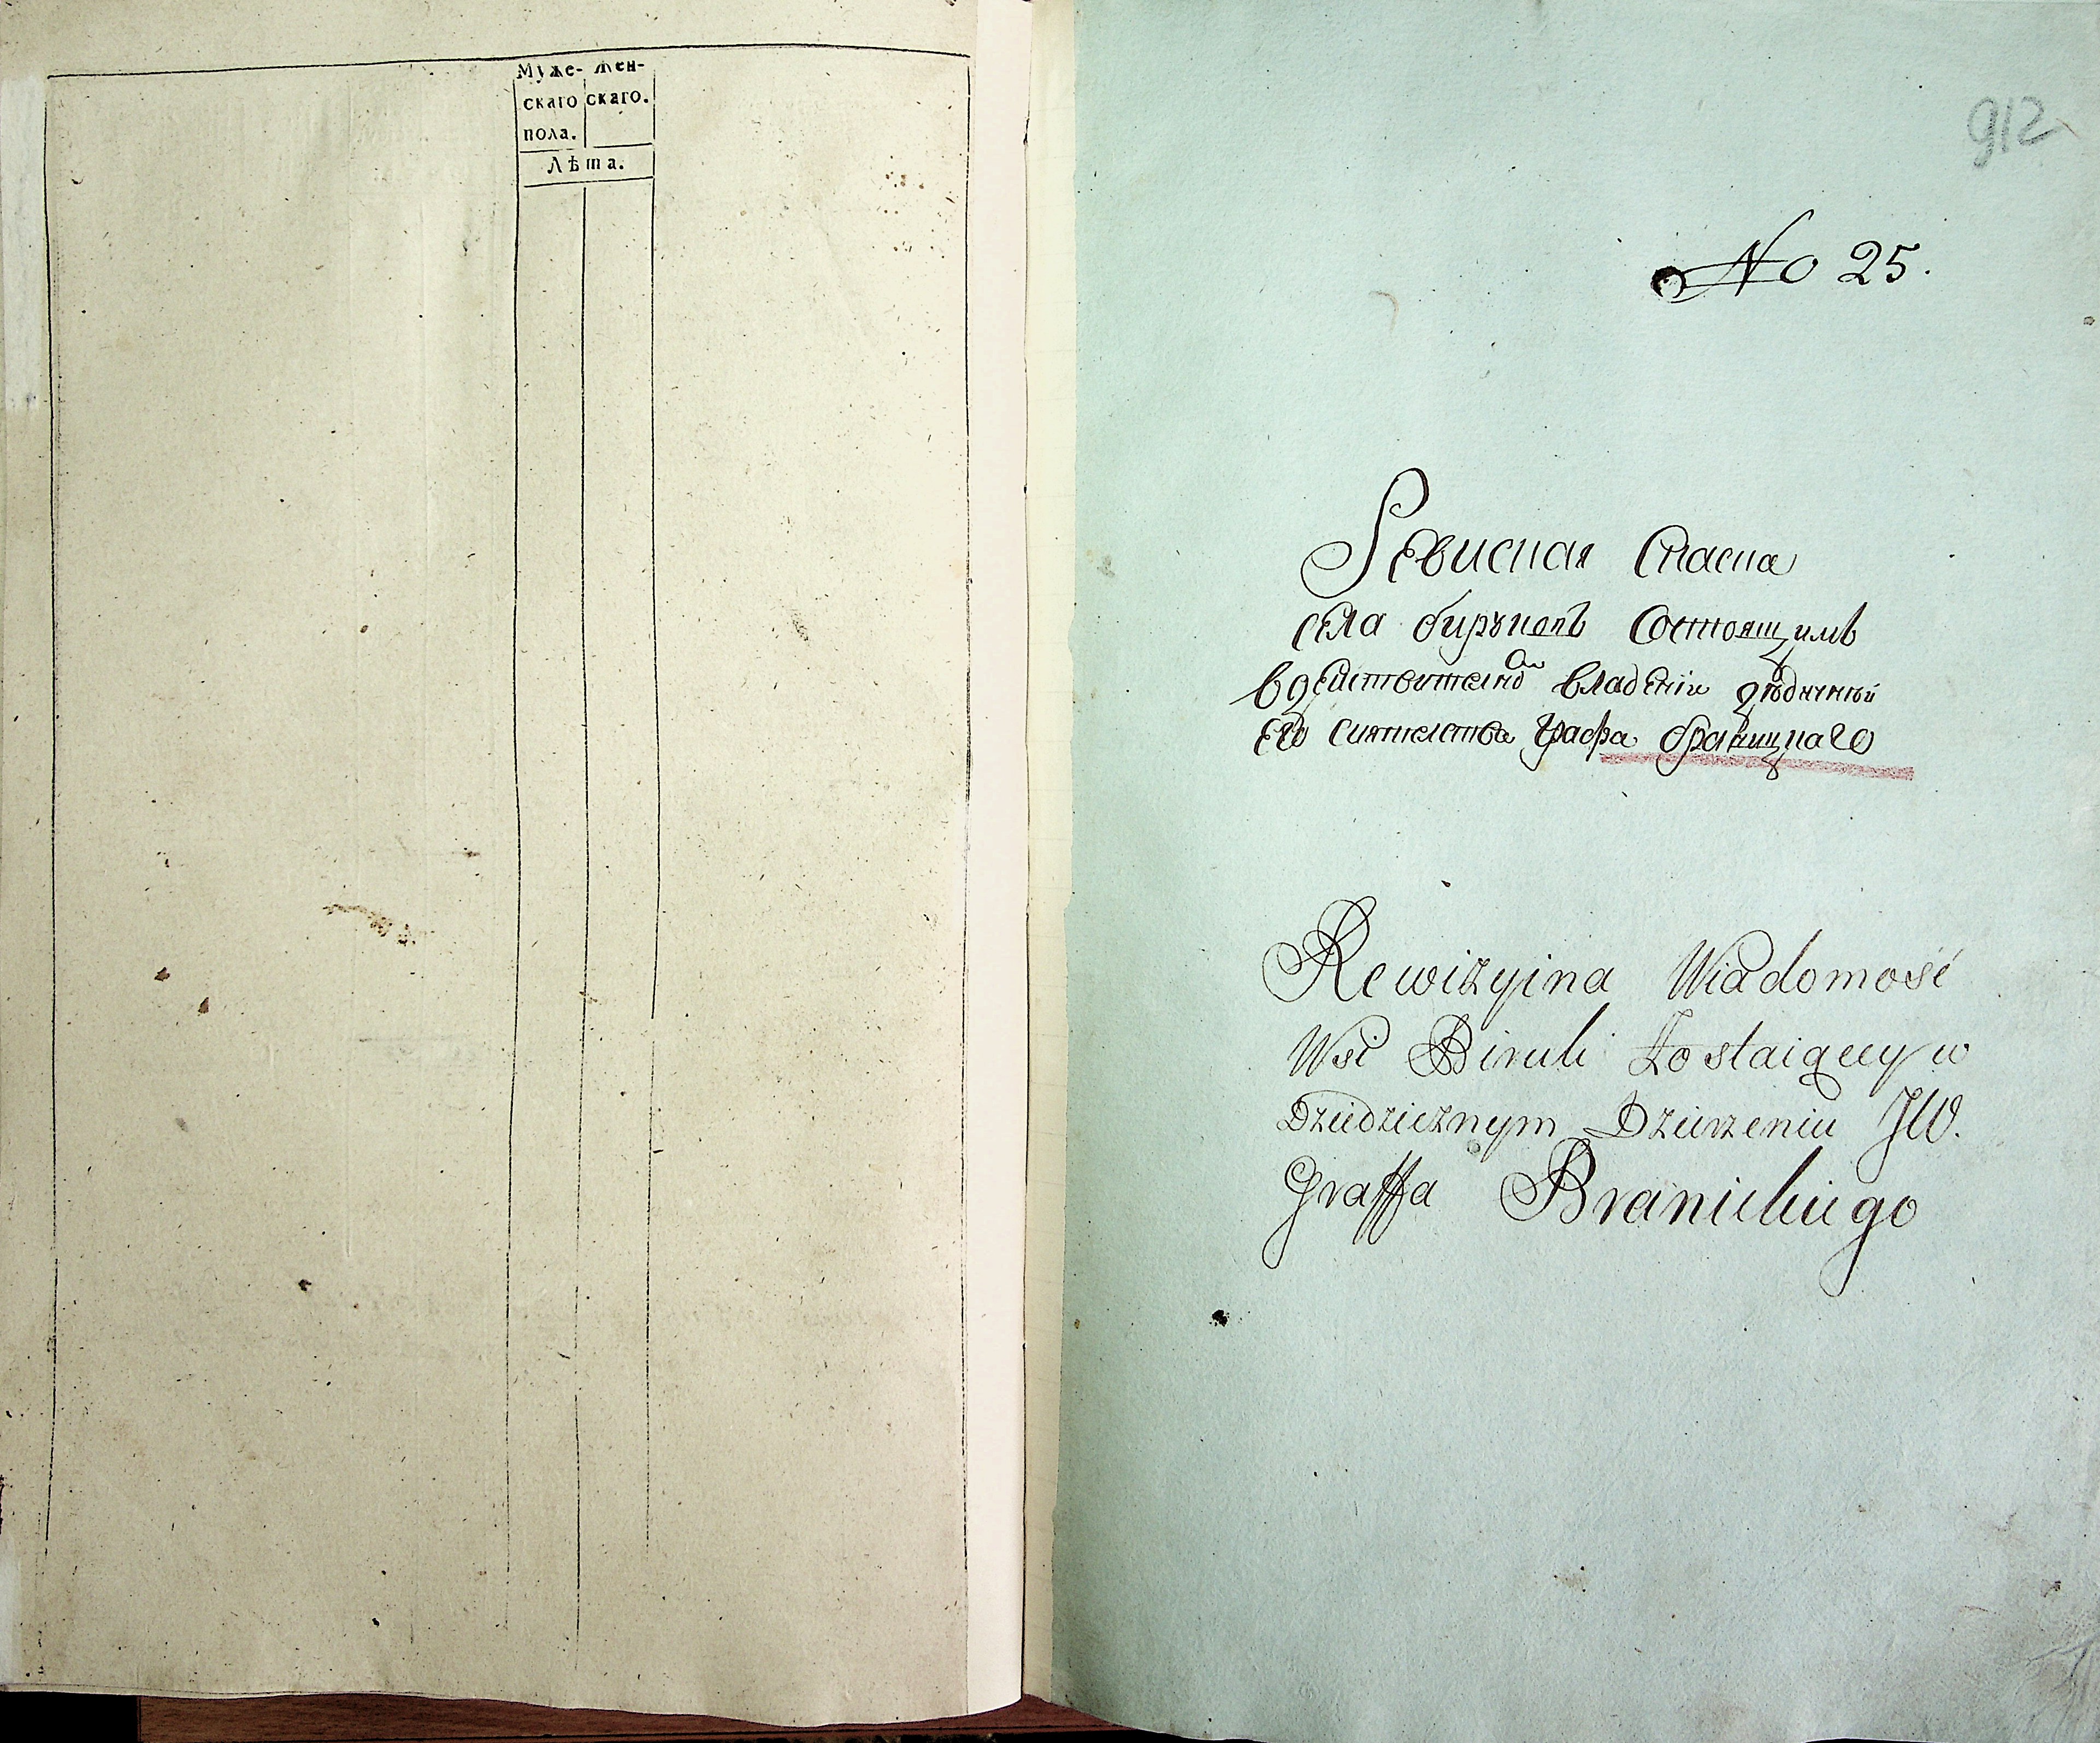 Муже- Жен-
скаго скаго.
пола.
Лѣта.
912
No 25.
Ревиская Сказка
села бирукокъ Состоящимъ
в действително владении дѣдичнѣй
Его Сиятелства Графа браницкаго
Rewizyina Wiadomość
Wsi Biruki Zostaiącey w
Dziedzicznym Dzierzeniu JW.
Graffa Branickiego